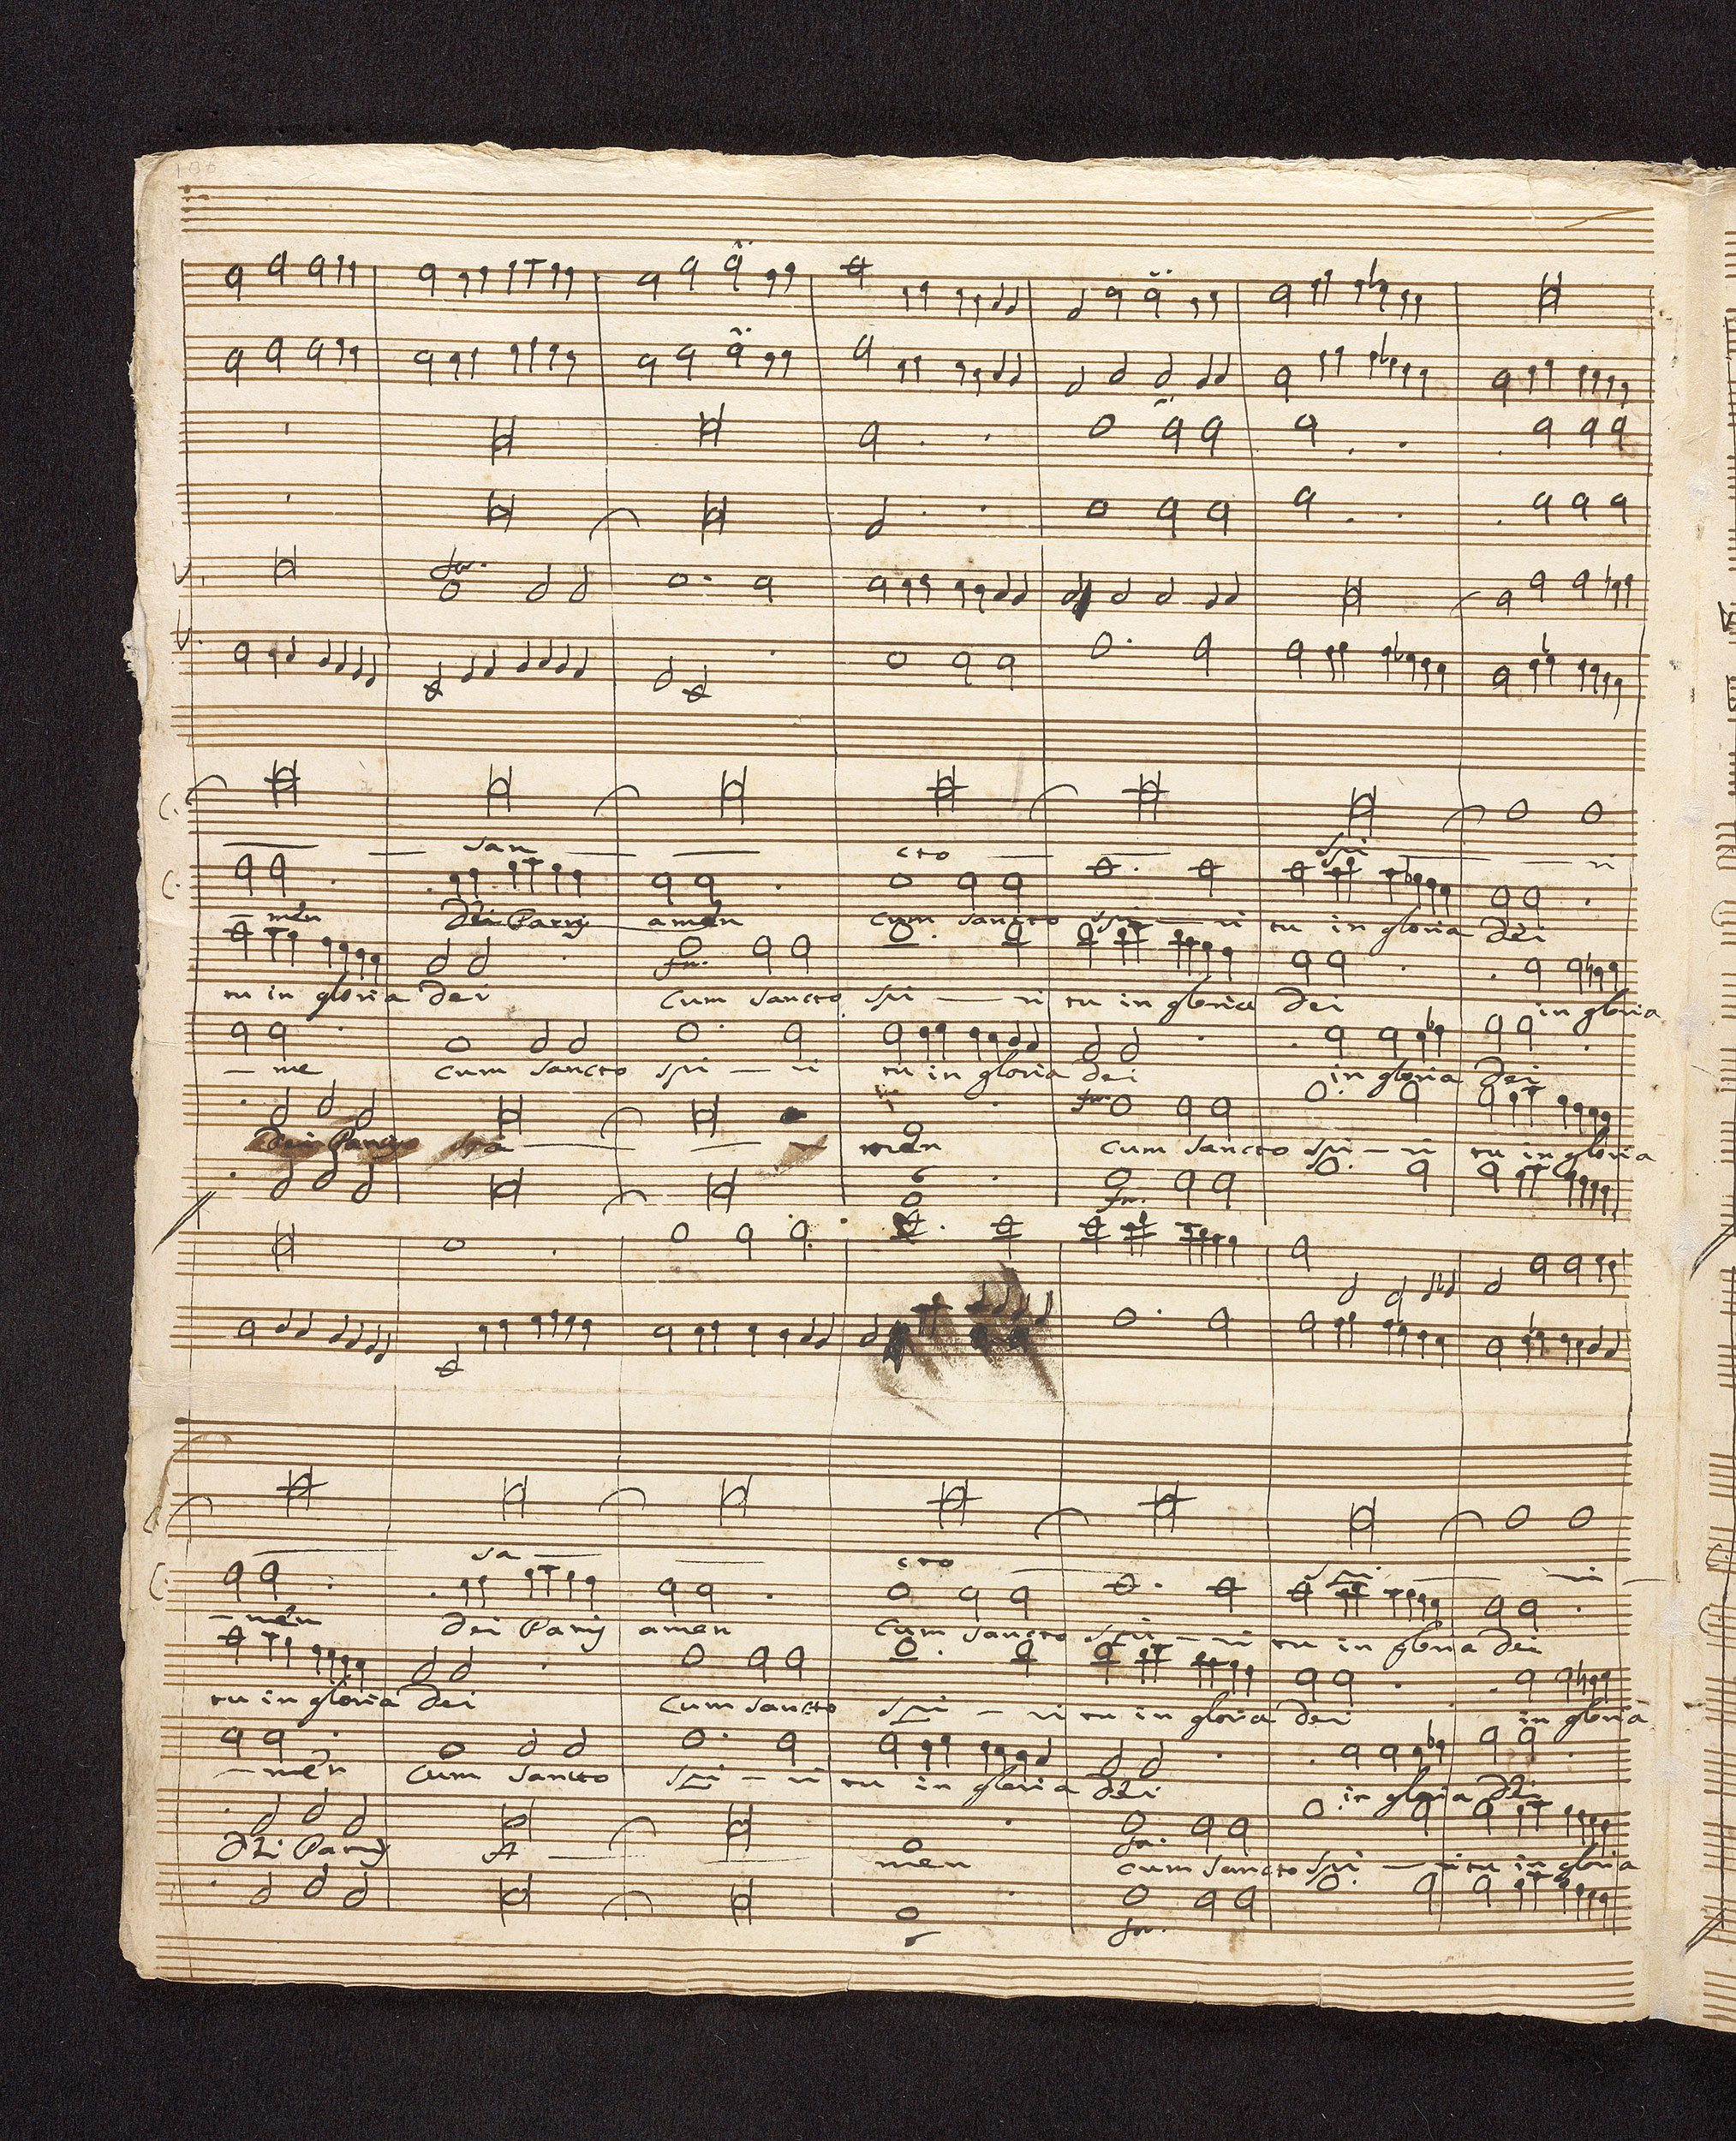 166
V.
V.
C.
san cto spi ri
C.
men Dei Patris amen cum sancto spi ri tu in gloria Dei
tu in gloria Dei cum sancto spi ri tu in gloria Dei in gloria
me cum sancto spi ri tu in gloria Dei in gloria Dei
Dei Patris a men cum sancto spi ri tu in gloria
6
sa cto spi ri
C.
men Dei Patris amen cum sancto spi ri tu in gloria Dei
tu in gloria Dei cum sancto spi ri tu in gloria Dei in gloria
men cum sancto spi ri tu in gloria Dei in gloria Dei
Dei Patris A men cum sancto spi ri tu in gloria